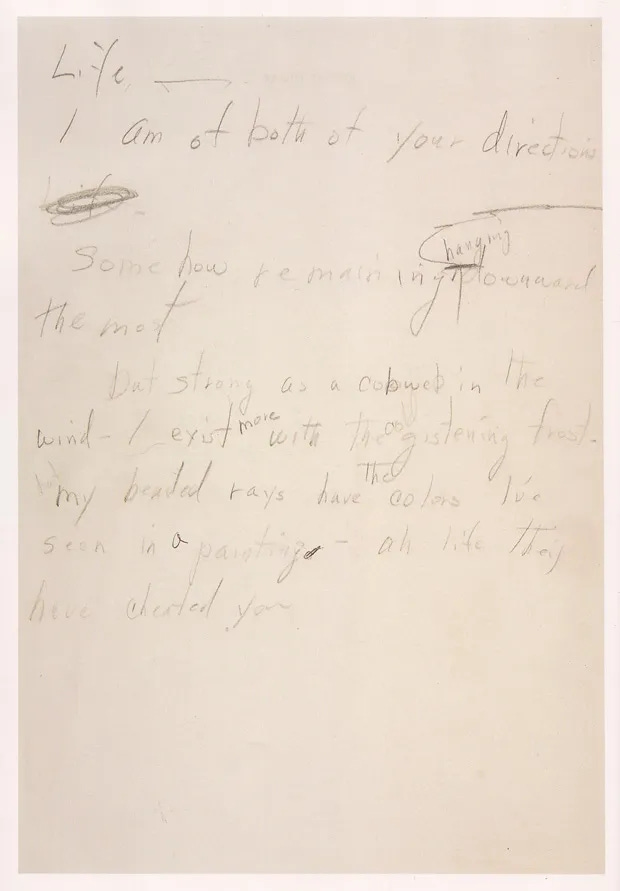 Life,
I am of both of your directions
Life
Somehow remaining hanging downward
the most
But strong as a cobweb in the
wind – I exist more with the cold glistening frost.
my beaded rays have the colors I've
seen in a painting – ah life they
have cheated you